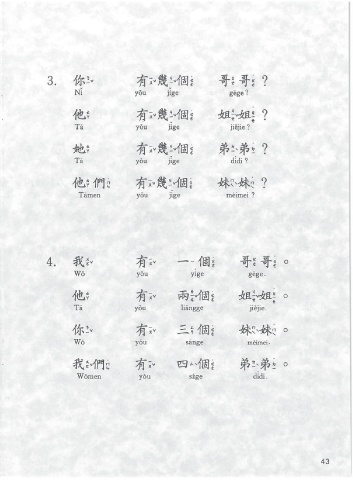 3. 你 有 幾個 哥哥？
Nǐ yǒu jǐge gēge?
他 有 幾個 姐姐？
Tā yǒu jǐge jiějie?
她 有 幾個 弟弟？
Tā yǒu jǐge dìdi?
他們 有 幾個 妹妹？
Tāmen yǒu jǐge mèimei?
4. 我 有 一個 哥哥。
Wǒ yǒu yíge gēge.
他 有 兩個 姐姐。
Tā yǒu liǎngge jiějie.
你 有 三個 妹妹。
Wǒ yǒu sānge mèimei.
我們 有 四個 弟弟。
Wǒmen yǒu sìge dìdi.
43